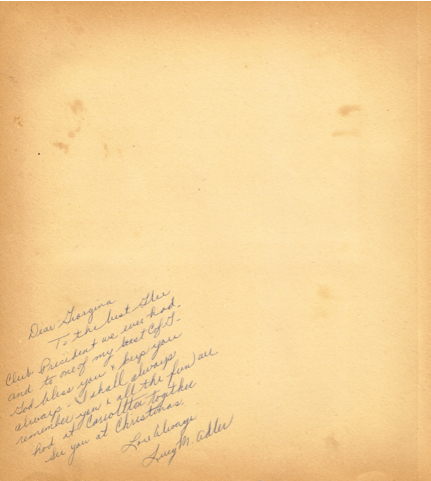 Dear Georgina
To the best Glee
Club President we ever had.
and to one of my best
God bless you & keep you
always. I shall always
remember you & all the fun we
had at together
See you at Christmas.
Love Always
Lucy M. Adler